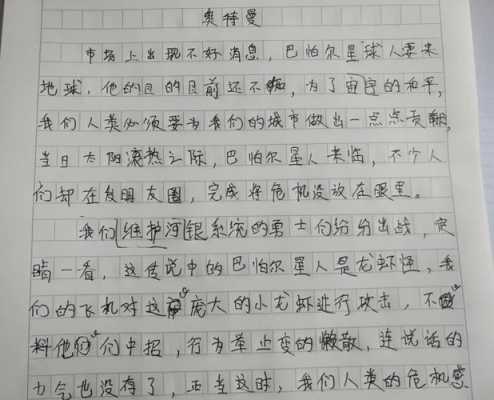 奥特曼
市场上出现不好消息，巴怕尔星球人要来
地球，他的目的目前还不知，为了宙宇的和平，
我们人类必须要为我们的城市做出一点点贡献，
当日太阳滚热之际，巴怕尔星人来临，不少人
们却在发朋友圈，完成将危机没放在眼里。
我们维护河银系统的勇士们纷纷出战，定
睛一看，这传说中的巴怕尔星人是龙虾怪，我
们的飞机对这庞大的小龙虾进行攻击，不
料他们们中招，行为举止变的懒散，连说话的
力气也没有了，正当这时，我们人类的危机